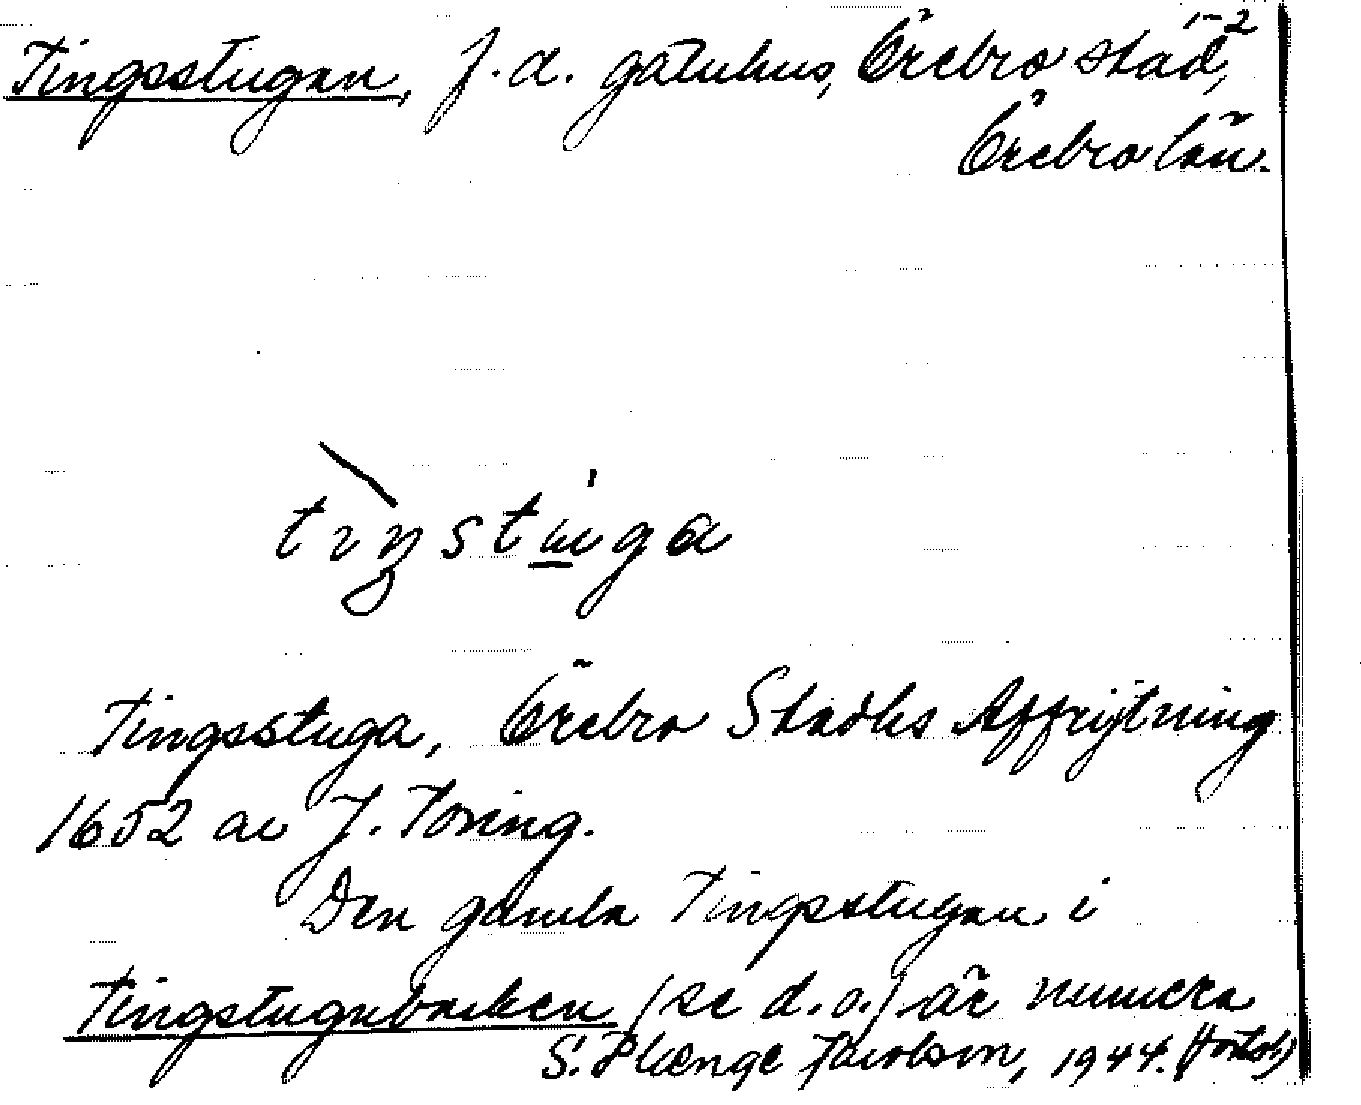 Tingsstugan, f.d. gatuhus, Örebro stad, 1-2
Örebro län.
Tingsstuga, Örebro Stadhs Affrijtning
1652 av J. Toring.
Den gamla Tingsstugan i
Tingstugubacken (se d.o.) är numera
S. Plenge Jacobson, 1944. (forts)